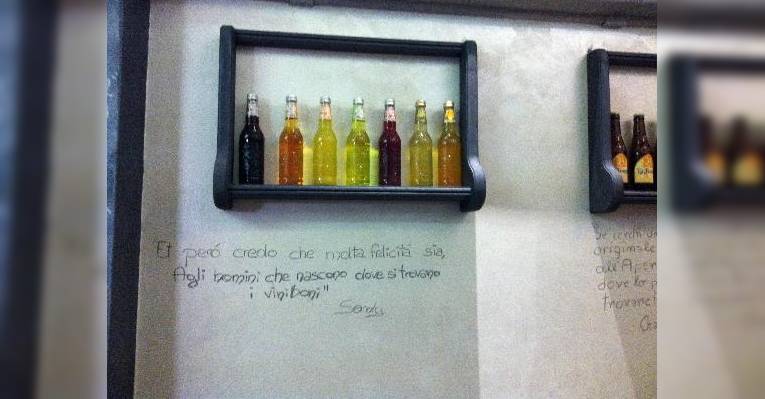 Et però credo che molta felicità sia,
Agli homini che nascono dove si trovano
i vini boni"
Se cerchi un
originale
all'Aper
dove lo p
trovare!